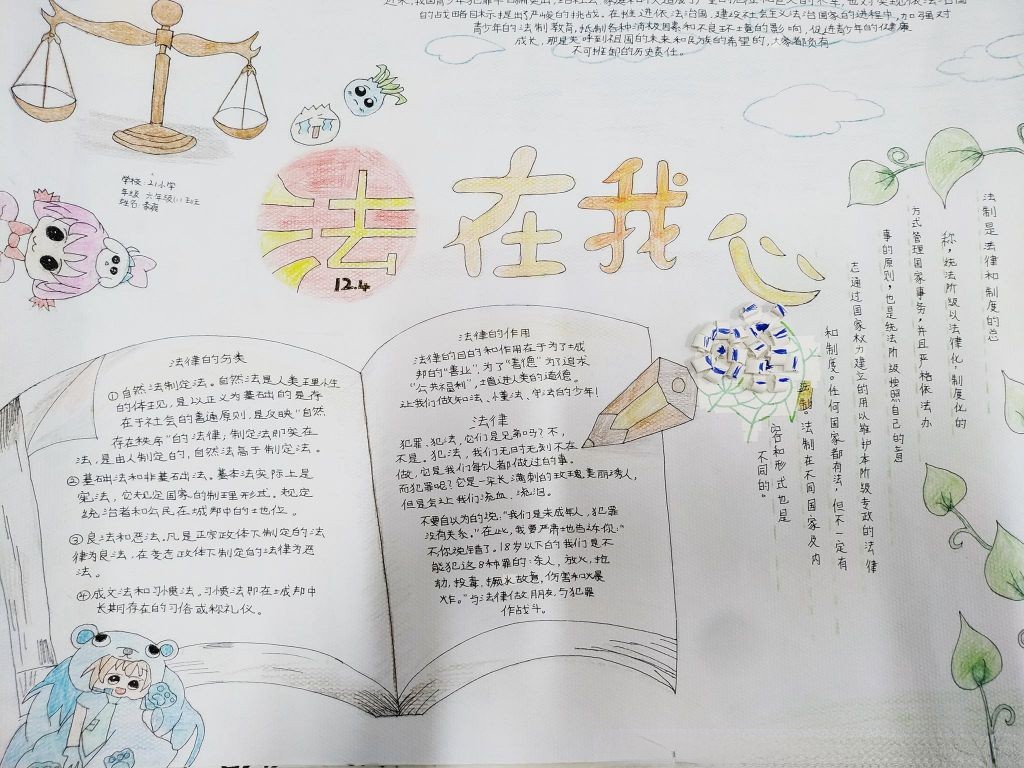 的战略目标提出了严峻的挑战。在推进依法治国,建设社会主义法治国家的进程中,加强对
青少年的法制教育,抵制各种消极因素和不良环境的影响,促进青少年的健康
成长,那是关呼到祖国的未来和民族的希望的,大家都负有
不可推卸的历史责任。
学校:21小学
年级 六年级(1)班
姓名:
法在我心
12.4
法律的分类
①自然法制定法。自然法是人类
的体现,是以正义为基础的是存
在于社会的普通原则,是反映"自然
存在秩序"的法律;制定法即实在
法,是由人制定的,自然法高于制定法。
②基础法和非基础法。基本法实际上是
宪法,它规定国家的制理形式。规定
统治者和公民在城邦中的地位。
③良法和恶法。凡是正宗政体下制定的法
律为良法,在变态政体下制定的法律为恶
法。
④成文法和习惯法。习惯法即在城邦中
长期存在的习俗或称礼仪。
法律的作用
法律的目的和作用在于为了城
邦的"善业",为了"善德"为了追求
"公共福利",增进人类的道德。
让我们做知法、懂法、守法的少年!
法律
犯罪、犯法,它们是兄弟吗?不,
不是。犯法,我们无时无刻不在
做,它是我们每个人都做过的事。
而犯罪呢?它是一朵长满刺的玫瑰,美丽诱人,
但是会让我们流血、流泪。
不要自以为的说:"我们是未成年人,犯罪
没有关系。"在此,我要严肃地告诉你:"
不,你说错了。18岁以下的我们是不
能犯这8种罪的:杀人,放火,抢
劫,投毒,贩
伤害和爆
炸。"与法律做朋友,与犯罪
作战斗。
法制是法律和制度的总
称,统治阶级以法律化,制度化的
方式管理国家事务,并且严格依法办
事的原则,也是统治阶级按照自己的意
志通过国家权力建立的用以维护本阶级专政的法律
和制度。任何国家都有法,但不一定有
法制在不同国家及内
容和形式也是
不同的。